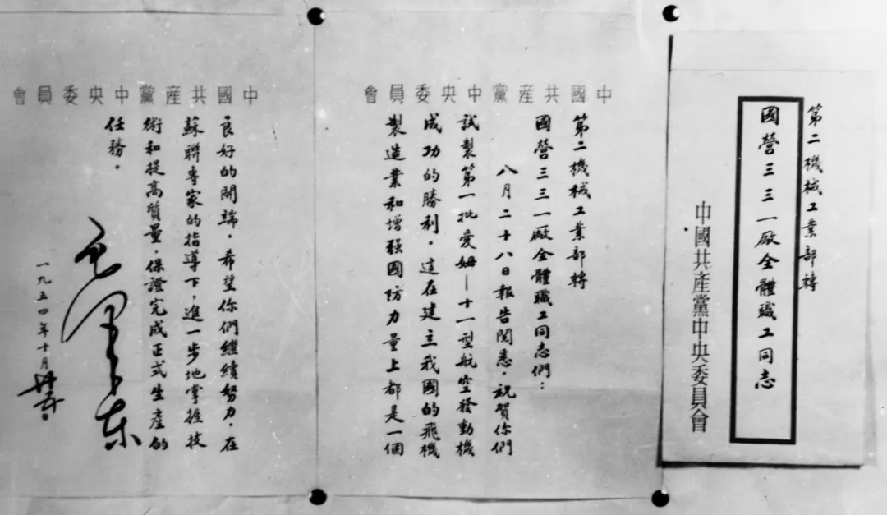 第二機械工業部轉
國營三三一厰全體職工同志
中國共產黨中央委員會
中國共產黨中央委員會
第二機械工業部轉
國營三三一厰全體職工同志們：
八月二十八日報告閱悉。祝賀你們
試製第一批愛姆—十一型航空發動機
成功的勝利。這在建立我國的飛機
製造業和增强國防力量上都是一個
中國共產黨中央委員會
良好的開端。希望你們繼續努力，在
蘇聯專家的指導下，進一步地掌握技
術和提高質量，保證完成正式生產的
任務。
毛澤東
一九五四年十月